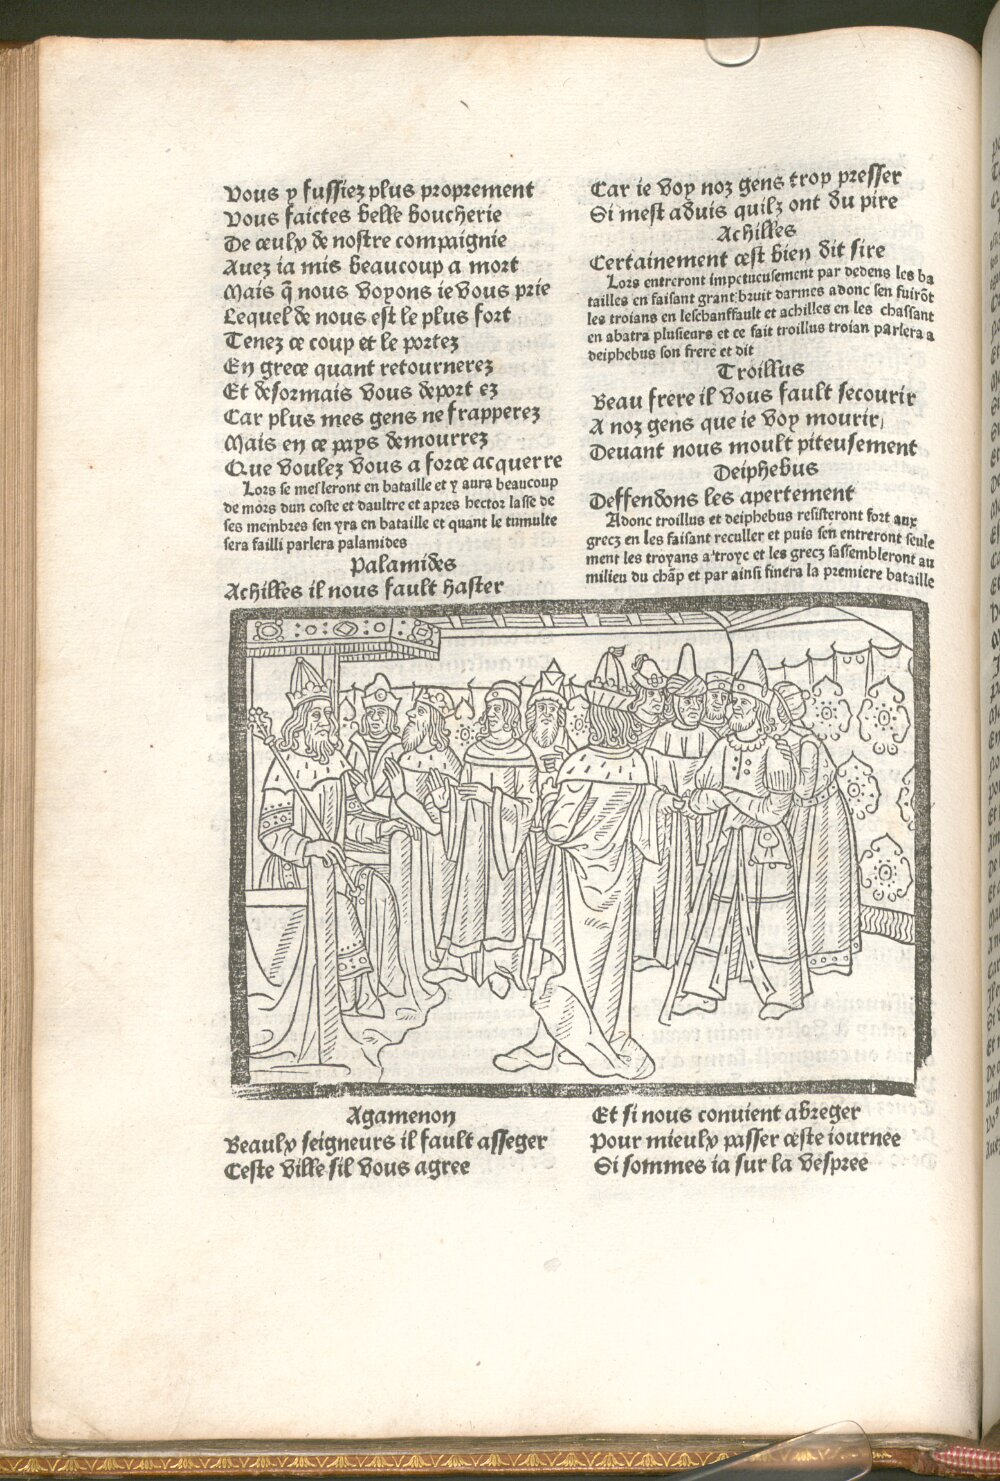 Vous y fussiez plus proprement
Vous faictes belle boucherie
De ceulx de nostre compaignie
Auez ia mis beaucoup a mort
Mais q̃ nous voyons ie vous prie
Lequel de nous est le plus fort
Tenez ce coup et le portez
En grece quant retournerez
Et desormais vous deport ez
Car plus mes gens ne frapperez
Mais en ce pays demourrez
Que voulez vous a force acquerre
Lors se mesleront en bataille et y aura beaucoup
de mors dun coste et daultre et apres hector lasse de
ses membres sen yra en bataille et quant le tumulte
sera failli parlera palamides
Palamides
Achilles il nous fault haster
Car ie voy noz gens trop presser
Si mest aduis quilz ont du pire
Achilles
Certainement cest bien dit sire
Lors entreront impetueusement par dedens les ba
tailles en faisant grant bruit darmes adonc sen fuirõt
les troians en leschanffault et achilles en les chassant
en abatra plusieurs et ce fait troillus troian parlera a
deiphebus son frere et dit
Troillus
Beau frere il vous fault secourir
A noz gens que ie voy mourir
Deuant nous moult piteusement
Deiphebus
Deffendons les apertement
Adonc troillus et deiphebus resisteront fort aux
grecz en les faisant reculler et puis sen entreront seule
ment les troyans a troye et les grecz sassembleront au
milieu du chãp et par ainsi finera la premiere bataille
Agamenon
Beaulx seigneurs il fault asseger
Ceste ville sil vous agree
Et si nous conuient abreger
Pour mieulx passer ceste iournee
Si sommes ia sur la vespree